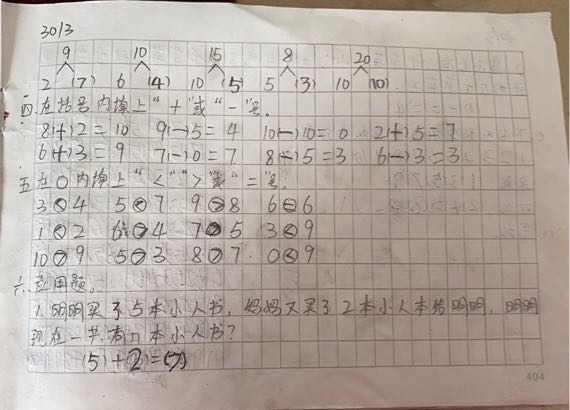 30/3
9 10 15 8 20
2 (7) 6 (4) 10 (5) 5 (3) 10 (10)
四.在括号内填上"+"或"-"号。
8(+)2=10 9(-)5=4 10(-)10=0 2(+)5=7
6(+)3=9 7(-)0=7 8(-)5=3 6(-)3=3
五.在○内填上"<"">"或"="号.
3<4 5<7 9>8 6=6
1<2 6>4 7>5 3<9
10>9 5>3 8>7 0<9
六.应用题。
1.明明买了5本小人书,妈妈又买了2本小人本给明明,明明
现在一共有几本小人书?
(5)+(2)=(7)
404